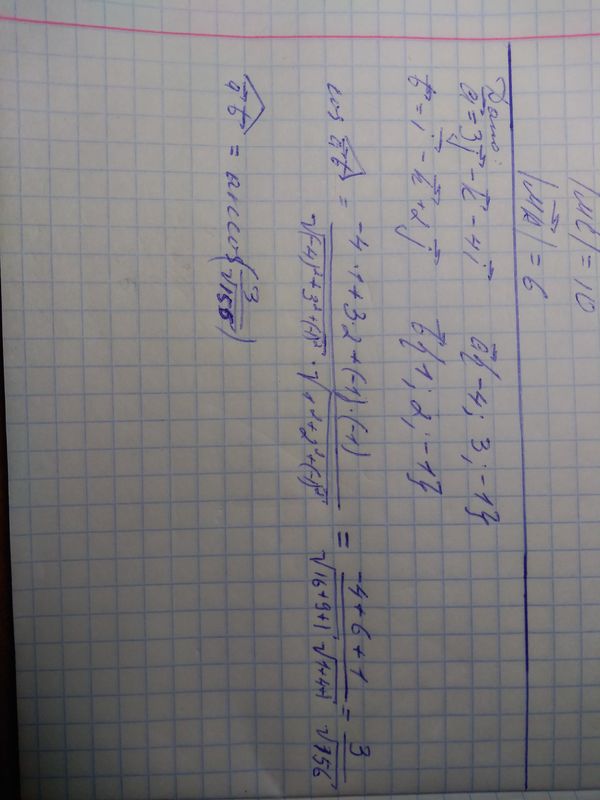 |MC| = 10
|MK| = 6
Дано:
a = 3j - k - 4i a{-4; 3; -1}
b = i - k + 2j b{1; 2; -1}
cos ab = (-4·1+3·2+(-1)·(-1))/(√(-4)²+3²+(-1)² · √1²+2²+(-1)²) = (-4+6+1)/(√16+9+1 √1+4+1) = 3/√156
ab = arccos(3/√156)